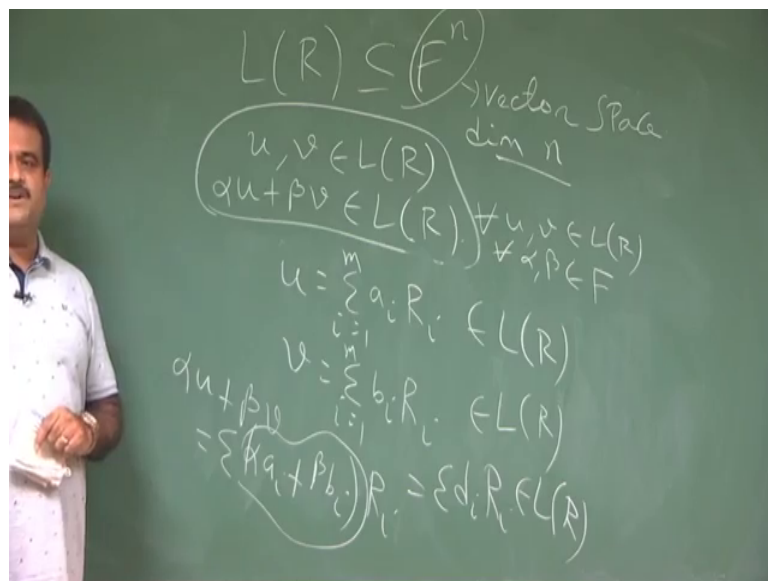 L(R) ⊆ Fⁿ
→ Vector Space
dim n
u, v ∈ L(R)
αu + βv ∈ L(R)
∀ u, v ∈ L(R)
∀ α, β ∈ F
u = Σᵢ₌₁ᵐ aᵢ Rᵢ ∈ L(R)
v = Σᵢ₌₁ᵐ bᵢ Rᵢ ∈ L(R)
αu + βv
= Σ (αaᵢ + βbᵢ) Rᵢ = Σ dᵢ Rᵢ ∈ L(R)